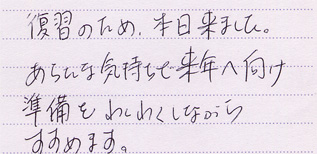 復習のため、本日来ました。
あらたな気持ちで来年へ向け
準備をわくわくしながら
すすめます。